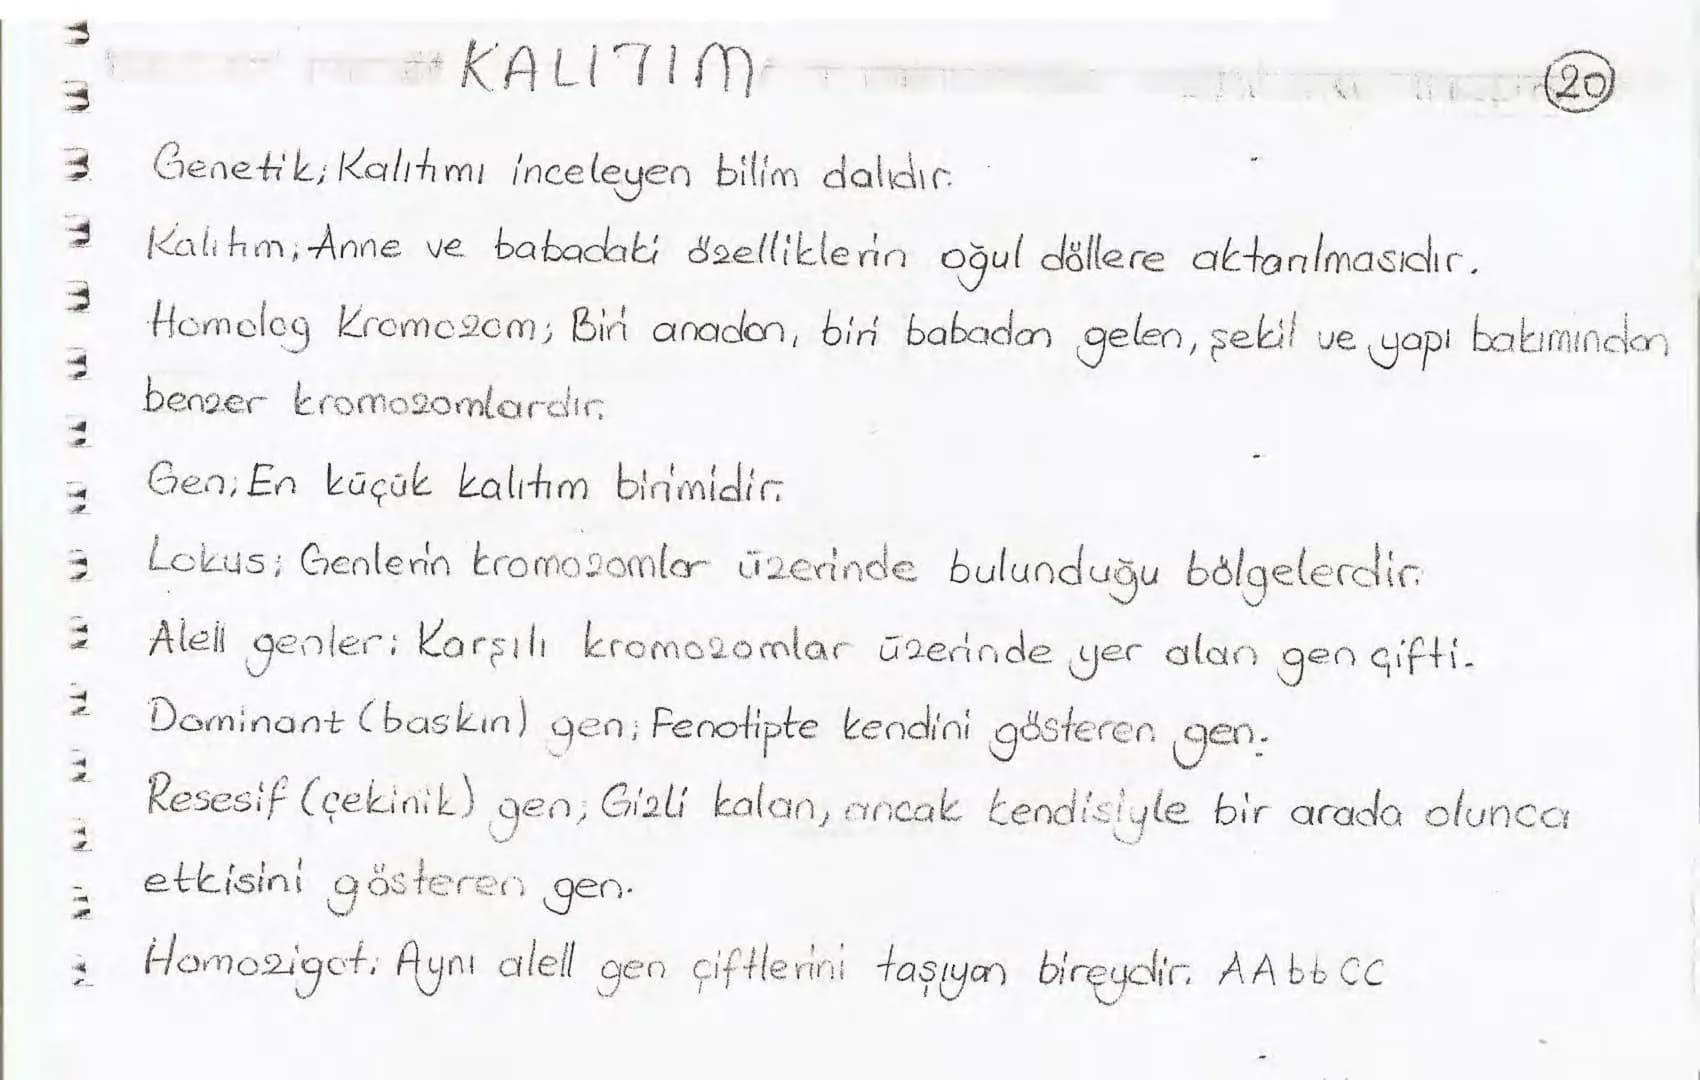 KALITIM
20
Genetik; Kalıtımı inceleyen bilim dalıdır.
Kalıtım; Anne ve babadaki özelliklerin oğul döllere aktarılmasıdır.
Homolog Kromozom; Biri anadan, biri babadan gelen, şekil ve yapı bakımından
benzer kromozomlardır.
Gen; En küçük kalıtım birimidir.
Lokus; Genlerin kromozomlar üzerinde bulunduğu bölgelerdir.
Alell genler: Karşılı kromozomlar üzerinde yer alan gen çifti.
Dominant (baskın) gen; Fenotipte kendini gösteren gen.
Resesif (çekinik) gen; Gizli kalan, ancak kendisiyle bir arada olunca
etkisini gösteren gen.
Homozigot: Aynı alell gen çiftlerini taşıyan bireydir. AA bb CC